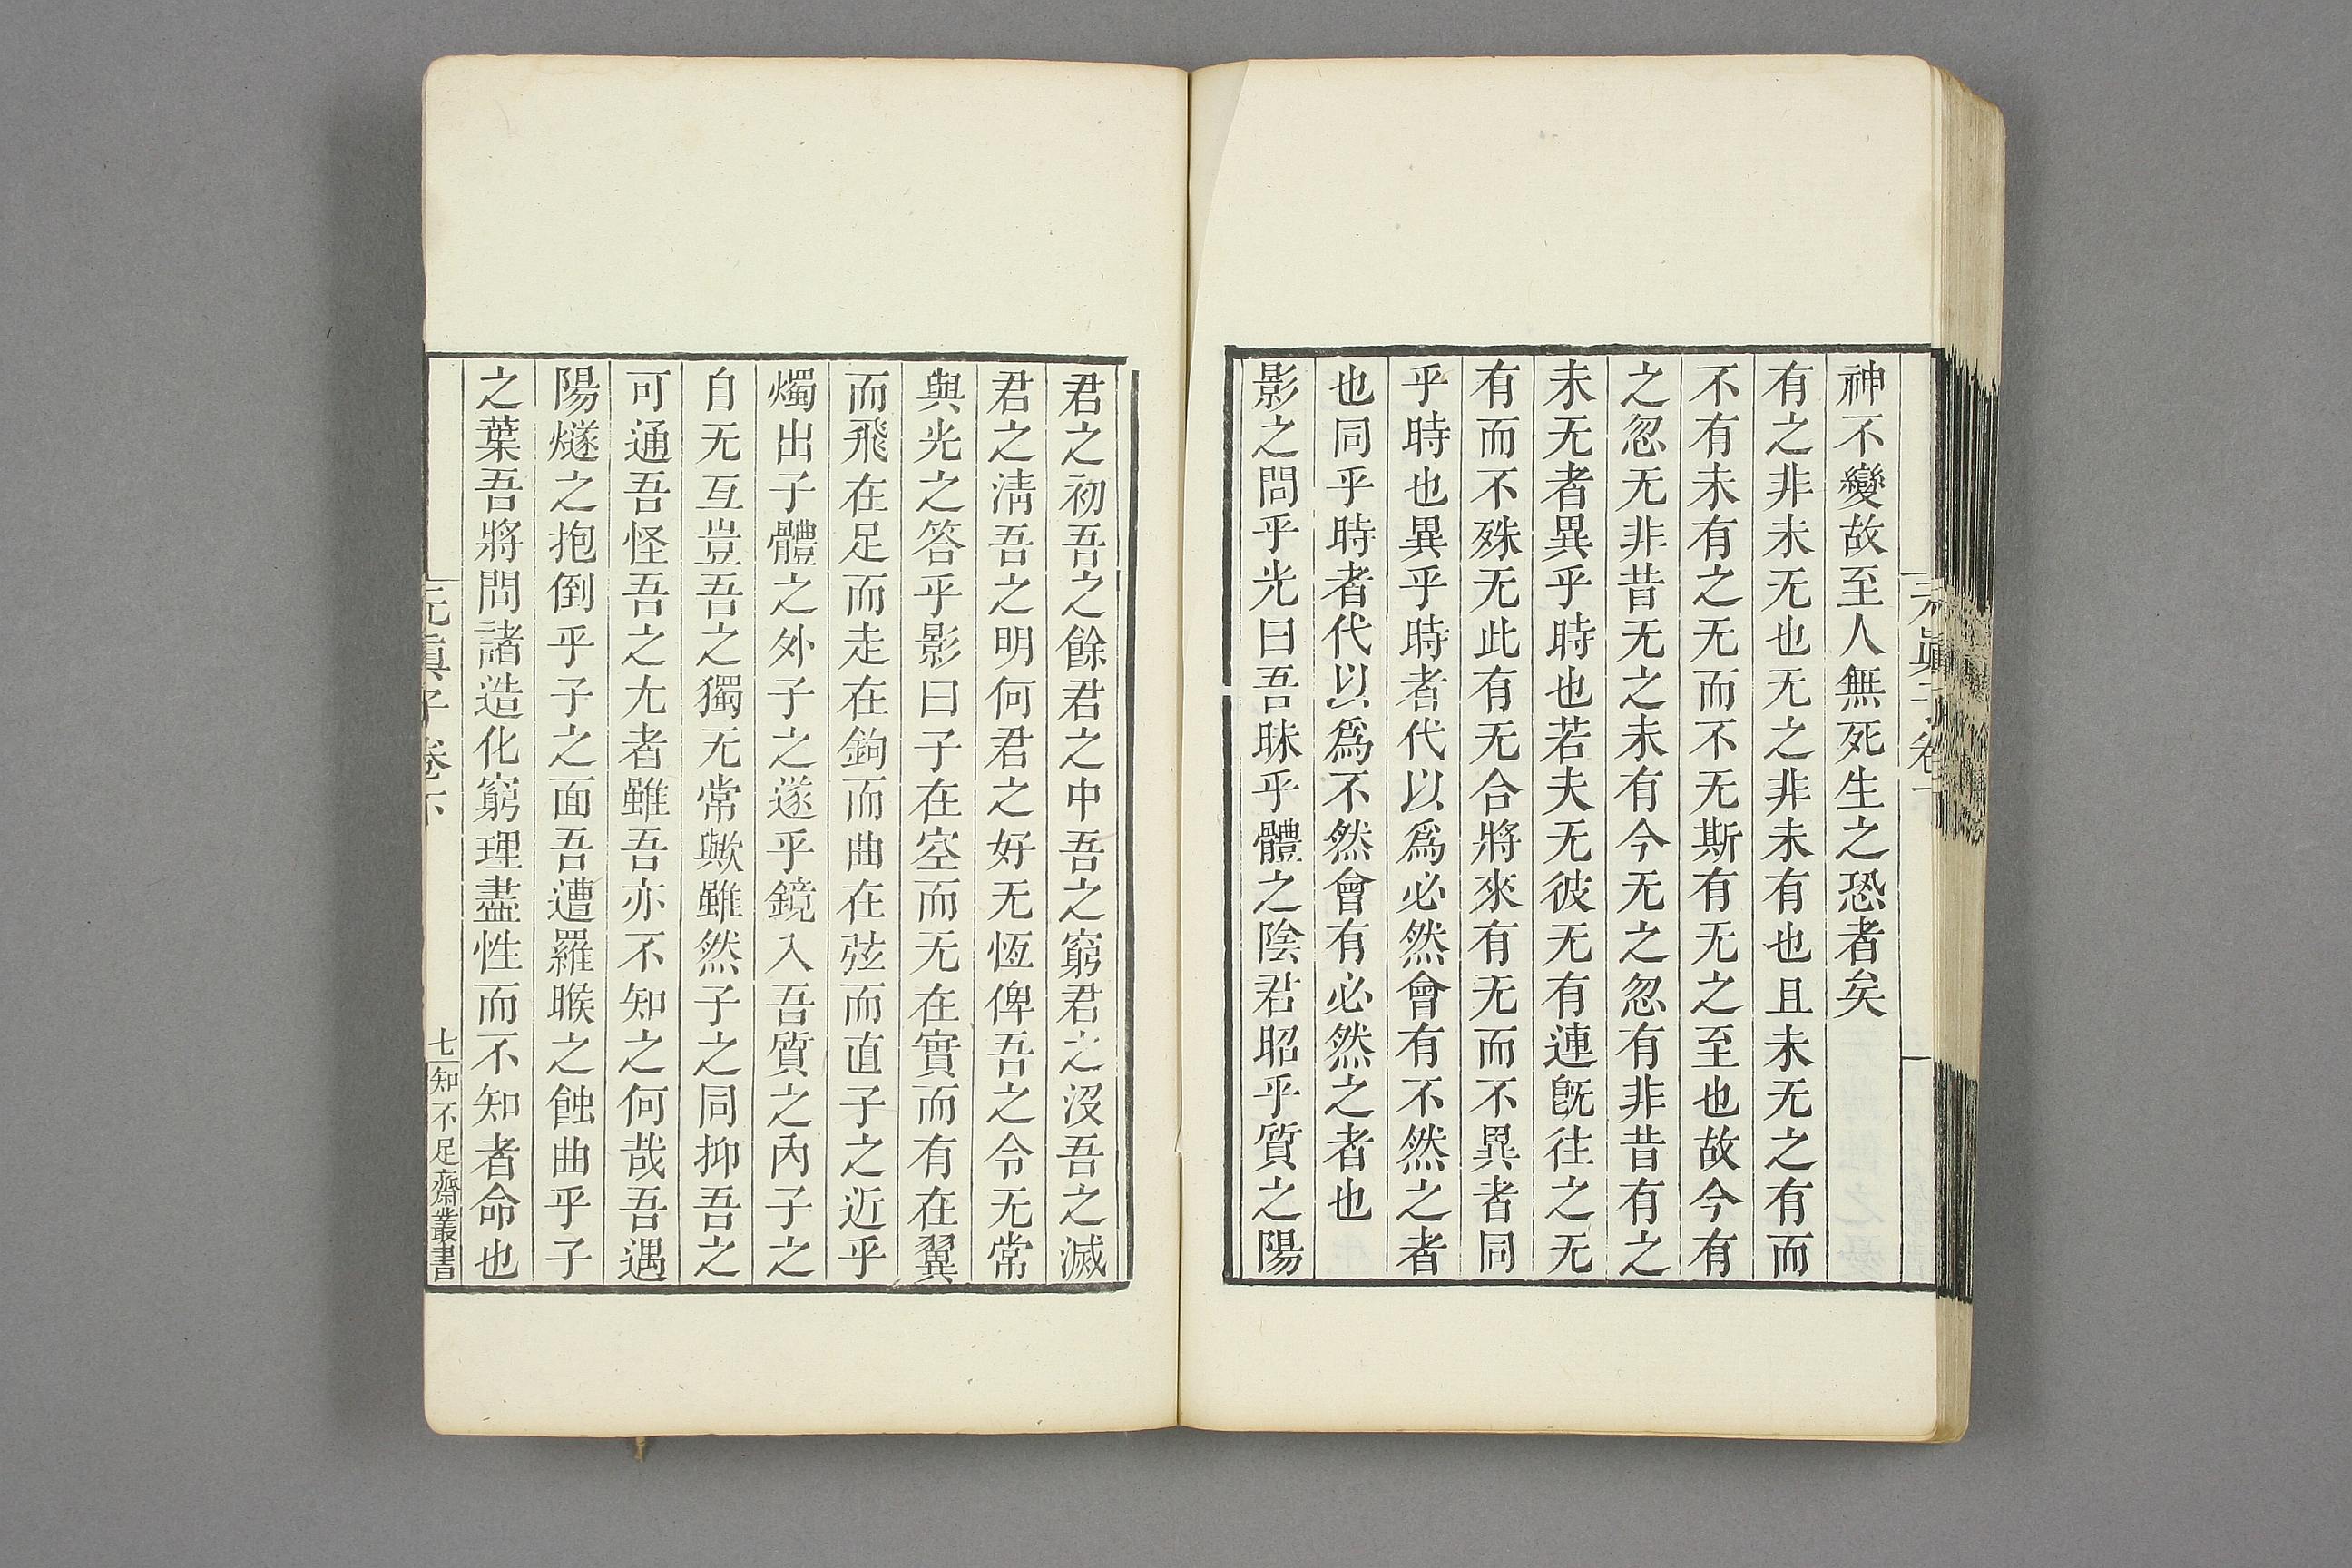 神不變故至人無死生之恐者矣
有之非未无也无之非未有也且未无之有而
不有未有之无而不无斯有无之至也故今有
之忽无非昔无之未有今无之忽有非昔有之
未无者異乎時也若夫无彼无有連既往之无
有而不殊无此有无合將來有无而不異者同
乎時也異乎時者代以爲必然會有不然之者
也同乎時者代以爲不然會有必然之者也
影之問乎光曰吾昧乎體之陰君昭乎質之陽
君之初吾之餘君之中吾之窮君之沒吾之滅
君之淸吾之明何君之好无恆俾吾之令无常
與光之答乎影曰子在空而无在實而有在翼
而飛在足而走在鉤而曲在弦而直子之近乎
燭出子體之外子之遂乎鏡入吾質之內子之
自无互豈吾之獨无常歟雖然子之同抑吾之
可通吾怪吾之尢者雖吾亦不知之何哉吾遇
陽燧之抱倒乎子之面吾遭羅睺之蝕曲乎子
之葉吾將問諸造化窮理盡性而不知者命也
元眞子卷下
七
知不足齋叢書